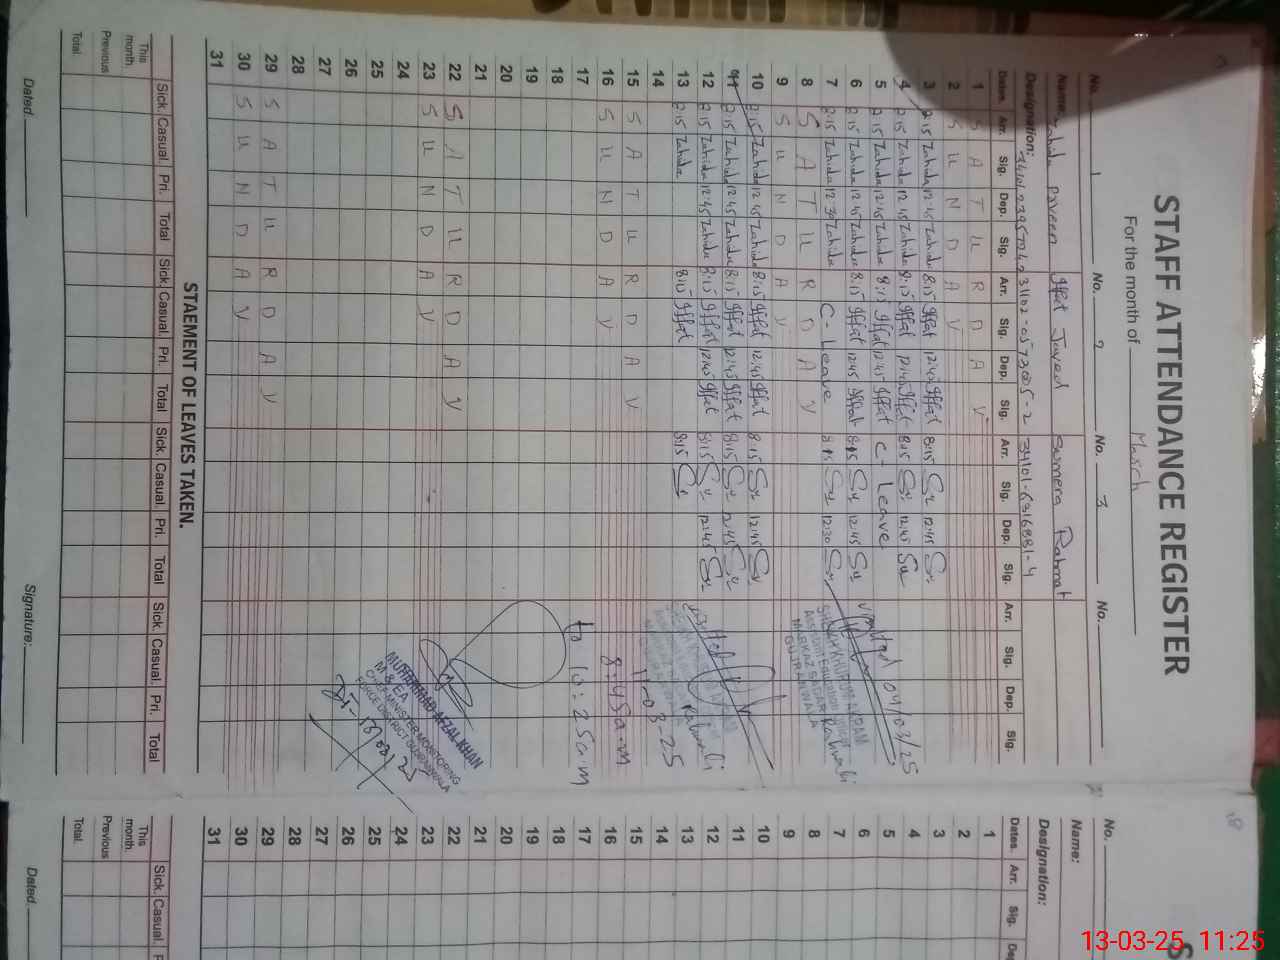 STAFF ATTENDANCE REGISTER
For the month of March
No. 1 No. 2 No. 3 No.
Name: Zahida Parveen Iffat Javed Sumera Rahmat
Designation: 31102-0573005-2 34101-6316881-4
Dates. Arr. Sig. Dep. Sig. Arr. Sig. Dep. Sig. Arr. Sig. Dep. Sig. Arr. Sig. Dep. Sig.
1 S A T U R D A Y
2 S U N D A Y
3 8:15 Zahida 12:45 Zahida 8:15 Iffat 12:45 Iffat 8:15 12:45
4 8:15 Zahida 12:45 Zahida 8:15 Iffat 12:45 Iffat 8:15 12:45
5 8:15 Zahida 12:45 Zahida 8:15 Iffat 12:45 Iffat C- Leave
6 8:15 Zahida 12:45 Zahida 8:15 Iffat 12:45 Iffat 8:15 12:45
7 8:15 Zahida 12:30 Zahida C- Leave 8:15 12:30
8 S A T U R D A Y
9 S U N D A Y
10 8:15 Zahida 12:45 Zahida 8:15 Iffat 12:45 Iffat 8:15 12:45
11 8:15 Zahida 12:45 Zahida 8:15 Iffat 12:45 Iffat 8:15 12:45
12 8:15 Zahida 12:45 Zahida 8:15 Iffat 12:45 Iffat 8:15 12:45
13 8:15 Zahida 8:15 Iffat 8:15
14
15 S A T U R D A Y
16 S U N D A Y
17
18
19
20
21
22 S A T U R D A Y
23 S U N D A Y
24
25
26
27
28
29 S A T U R D A Y
30 S U N D A Y
31
04/03/25
MARKAZ SADAR
GUJRANWALA
11-03-25
8:45 a.m
to 10:25 a.m
MUHAMMAD AFZAL KHAN
M & EA
CHIEF MINISTER MONITORING
FORCE DISTRICT GUJRANWALA
STAEMENT OF LEAVES TAKEN.
Sick. Casual. Pri. Total Sick. Casual. Pri. Total Sick. Casual. Pri. Total Sick. Casual. Pri. Total
This month.
Previous
Total.
Dated. Signature:
No.
Name:
Designation:
Dates. Arr. Sig.
1
2
3
4
5
6
7
8
9
10
11
12
13
14
15
16
17
18
19
20
21
22
23
24
25
26
27
28
29
30
31
Sick. Casual.
This month.
Previous
Total.
Dated.
13-03-25 11:25